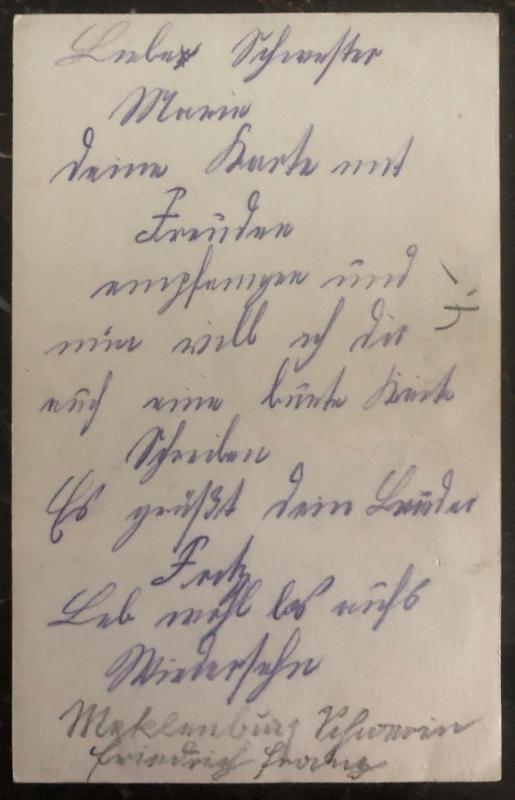 Liebe Schwester
Marie
deine Karte mit
Freuden
empfangen und
nun will ich dir
auch eine bunte Karte
Schreiben
Es grüßt dein Bruder
Fritz
Leb wohl bis aufs
Wiedersehn
Meklenburg Schwerin
Friedrich Franz